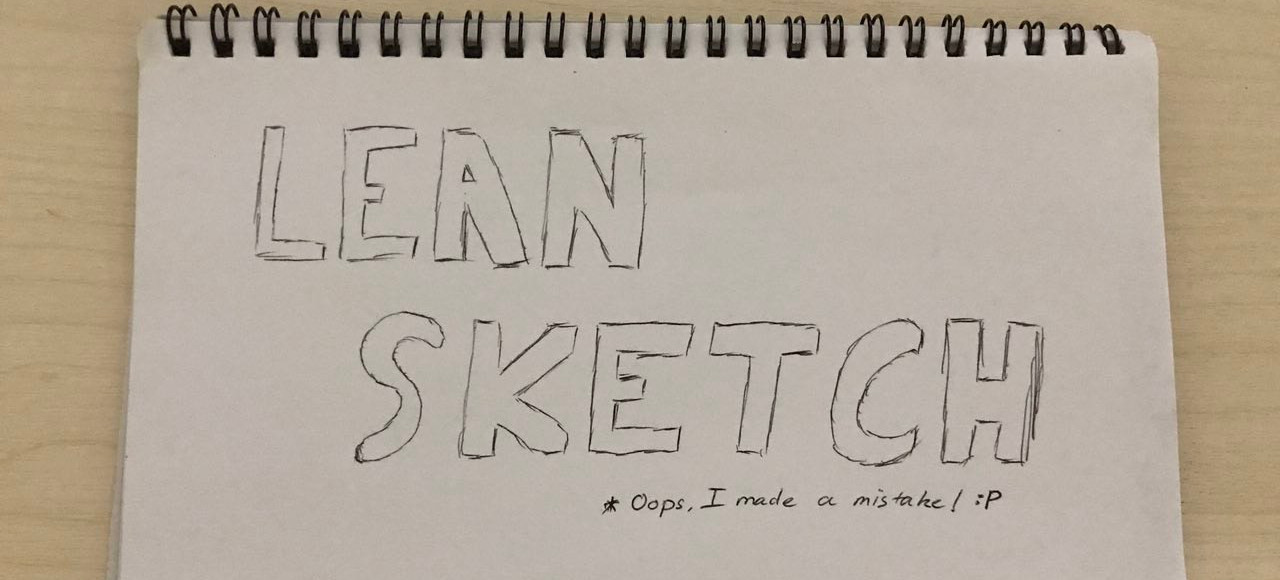 LEAN
SKETCH
* Oops, I made a mistake! :P